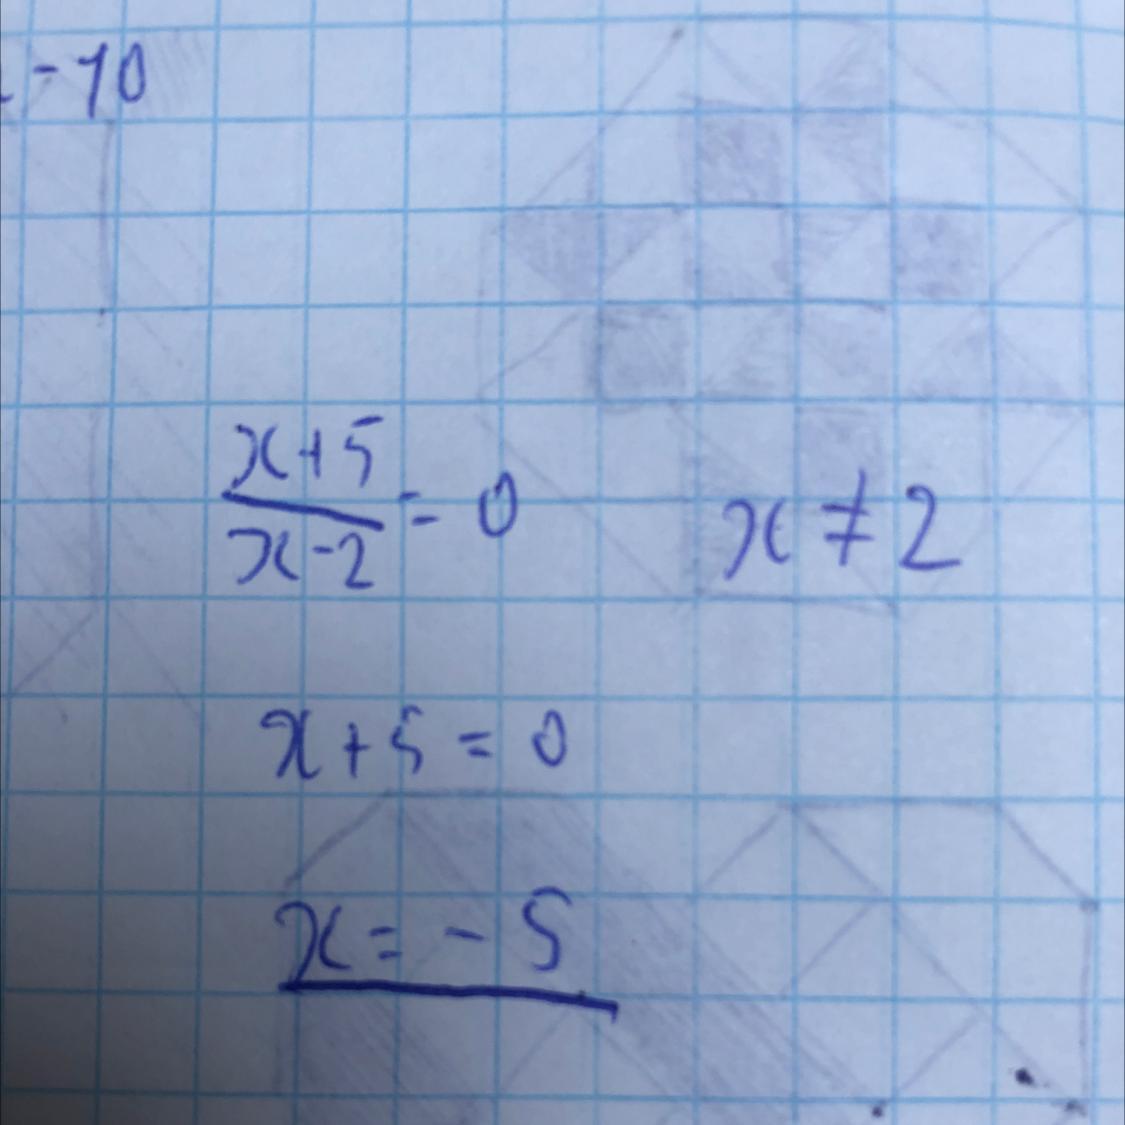 -10
x+5
x-2 = 0 x ≠ 2
x+5 = 0
x = -5